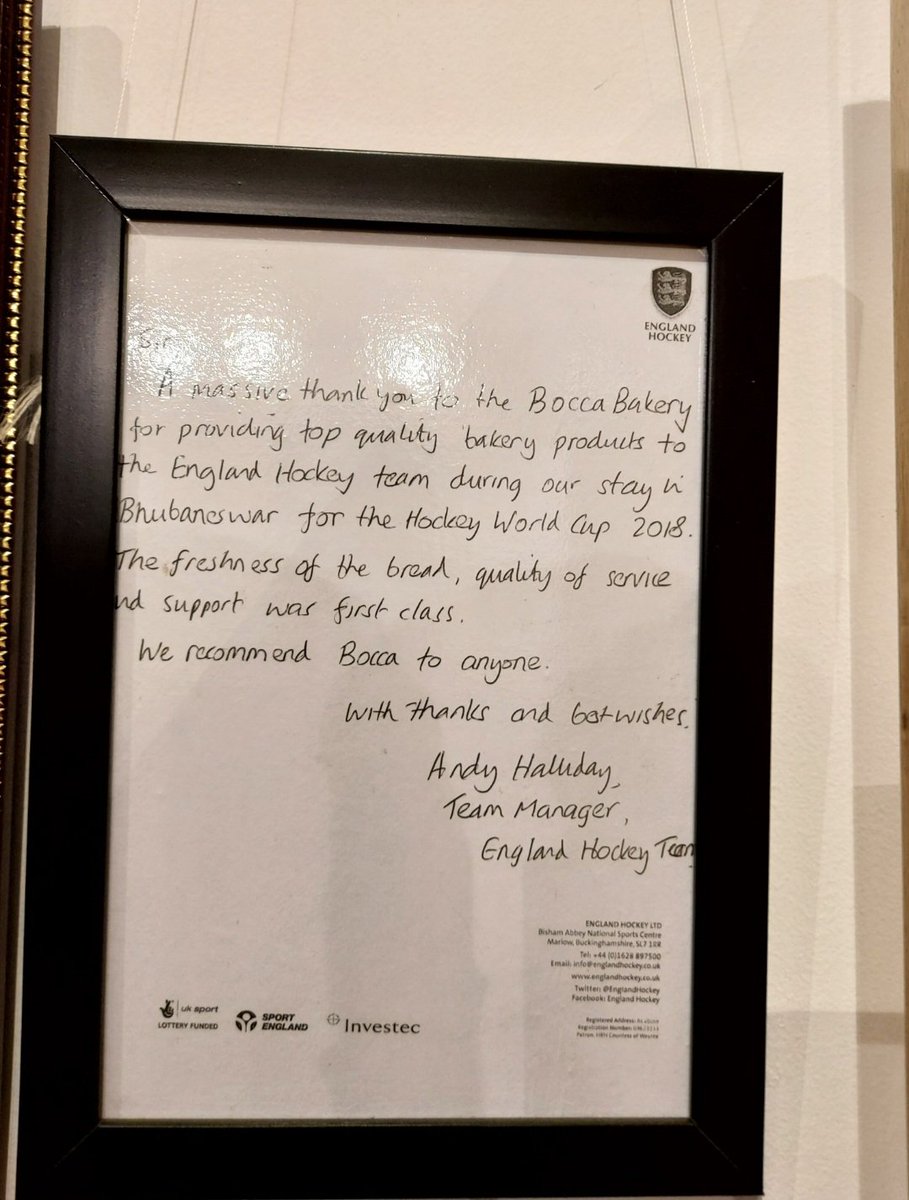 ENGLAND
HOCKEY
Sir
A massive thank you to the Bocca Bakery
for providing top quality bakery products to
the England Hockey team during our stay in
Bhubaneswar for the Hockey World Cup 2018.
The freshness of the bread, quality of service
nd support was first class.
We recommend Bocca to anyone.
With thanks and best wishes,
Andy Halliday,
Team Manager,
England Hockey Team
ENGLAND HOCKEY LTD
Bisham Abbey National Sports Centre
Marlow, Buckinghamshire, SL7 1RR
Tel: +44 (0)1628 897500
Email: info@englandhockey.co.uk
www.englandhockey.co.uk
Twitter: @EnglandHockey
Facebook: England Hockey
Registered Address: As above
Registration Number:
Patron: HRH Countess of Wessex
uk sport
LOTTERY FUNDED
SPORT
ENGLAND
Investec